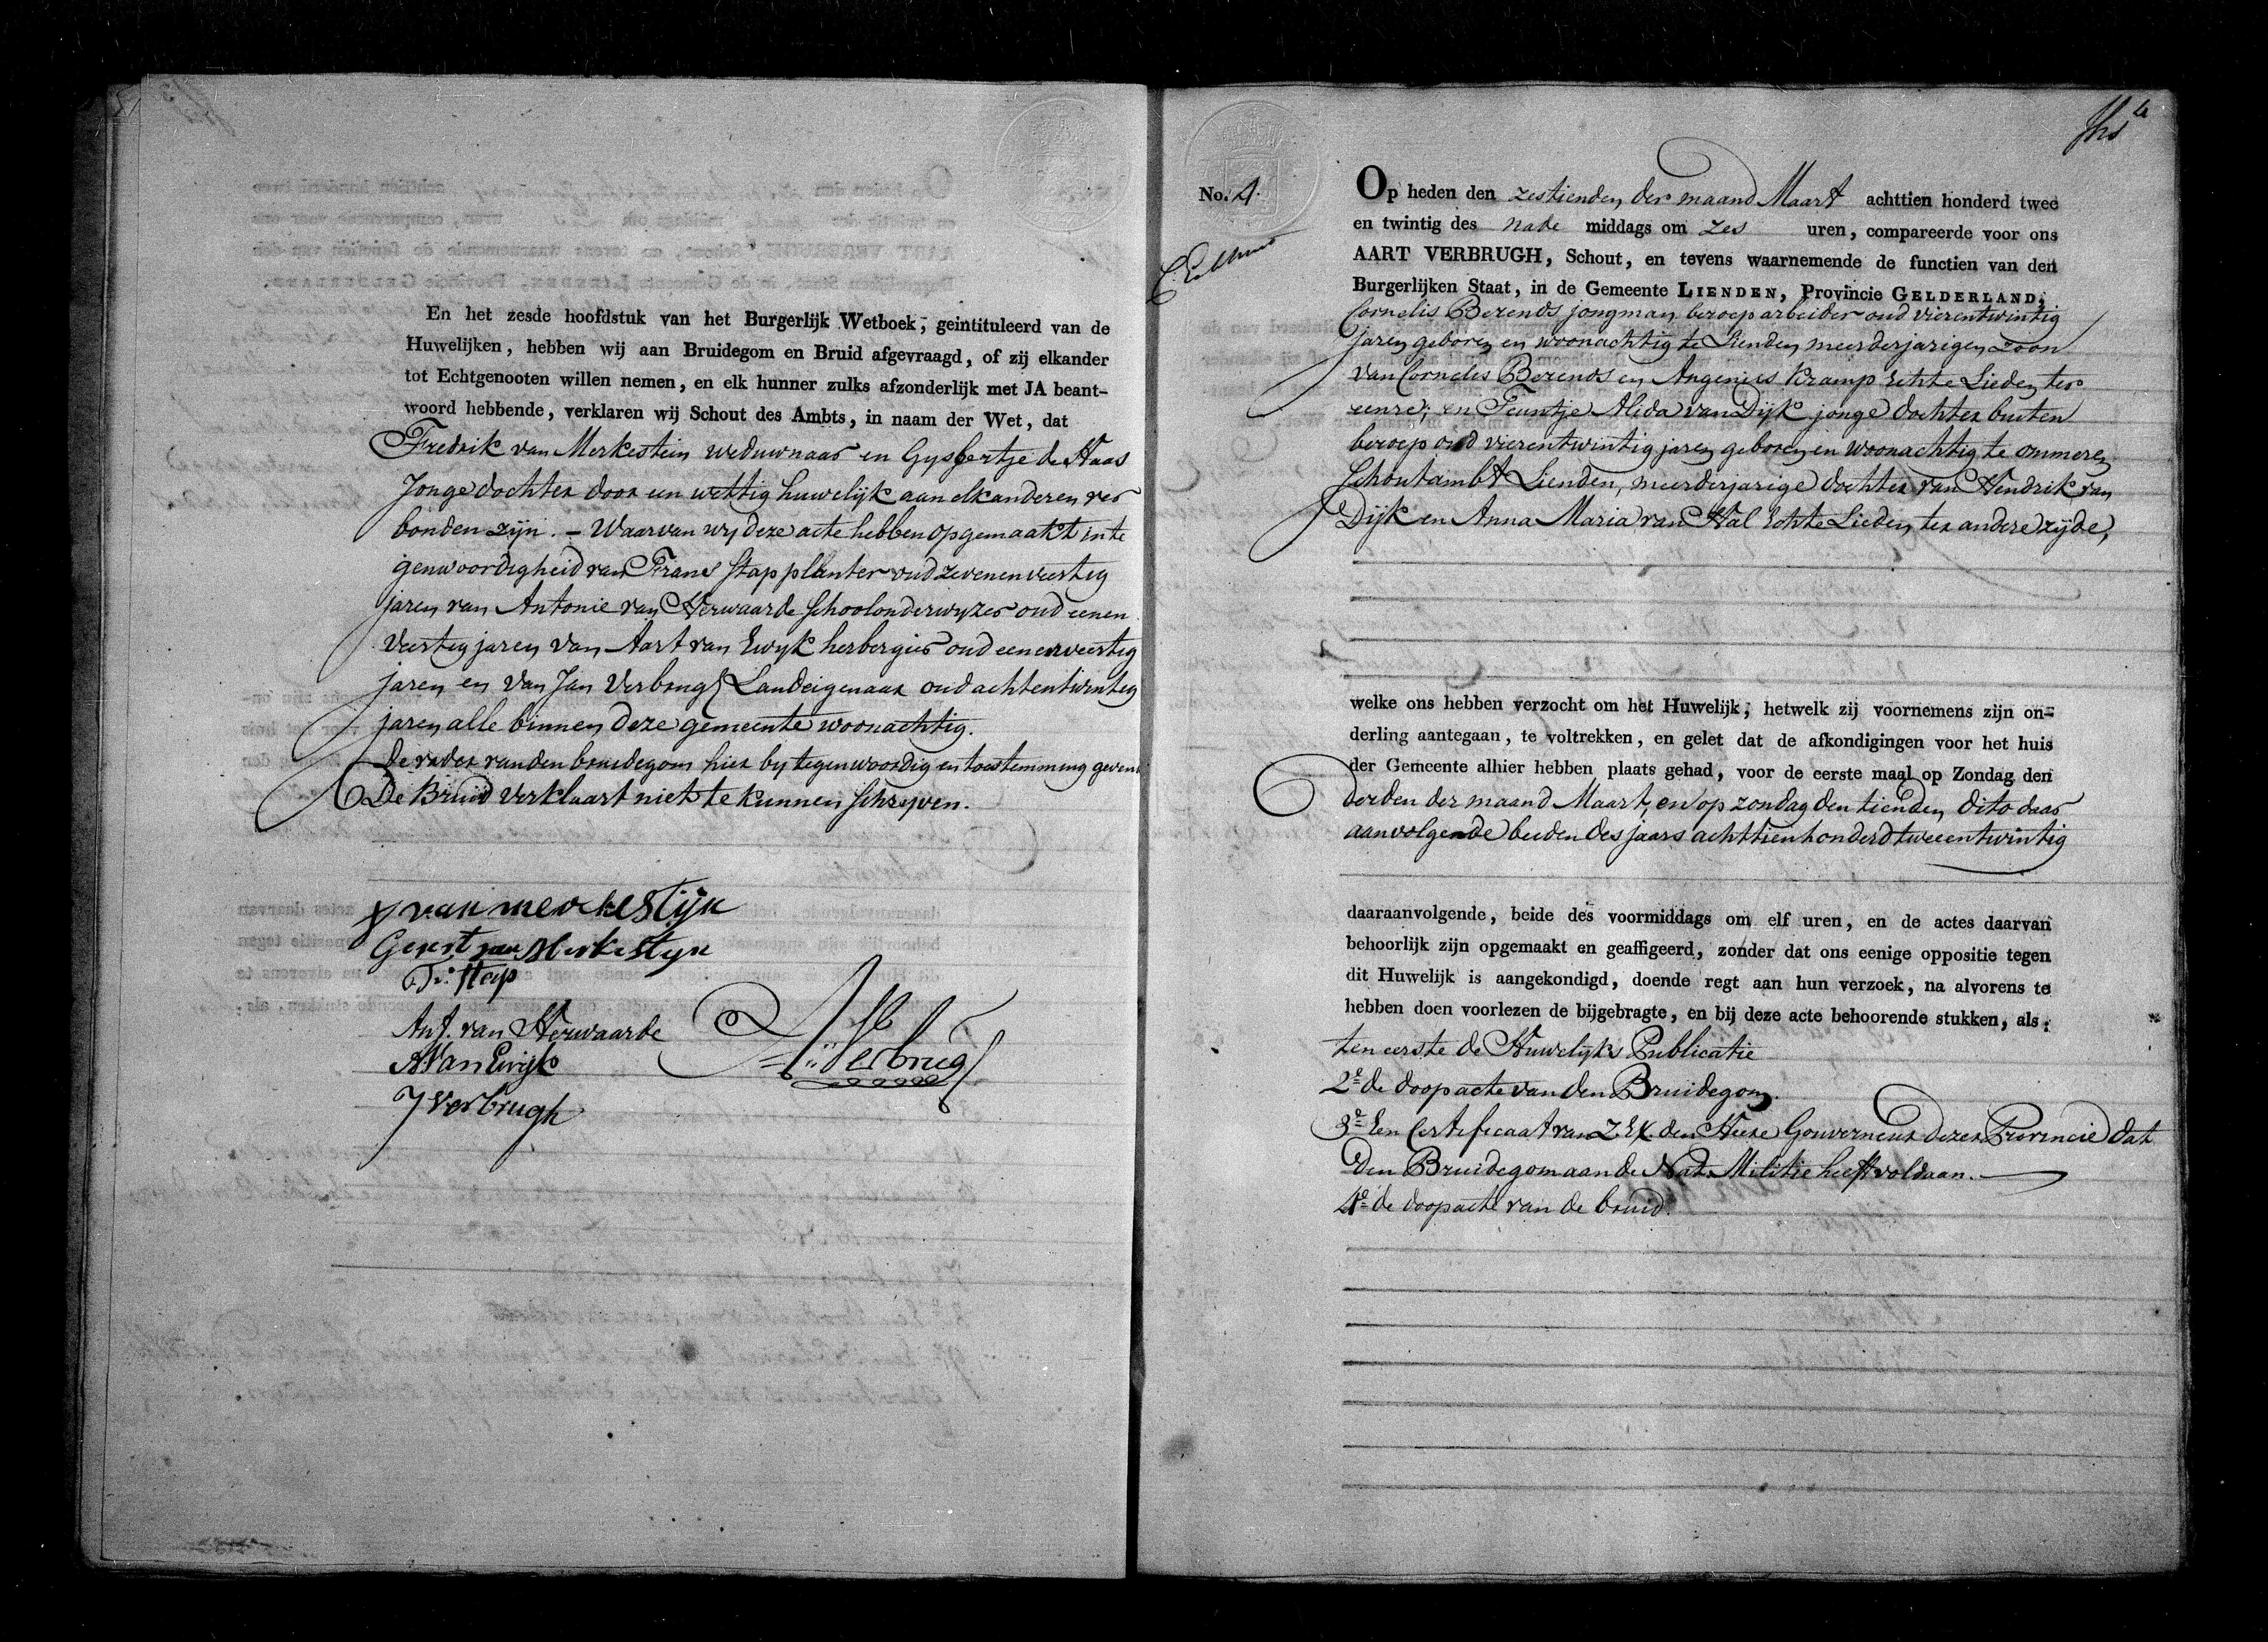 En het zesde hoofdstuk van het Burgerlijk Wetboek, geintituleerd van de
Huwelijken, hebben wij aan Bruidegom en Bruid afgevraagd, of zij elkander
tot Echtgenooten willen nemen, en elk hunner zulks afzonderlijk met JA beant-
woord hebbende, verklaren wij Schout des Ambts, in naam der Wet, dat
Fredrik van Merkestein weduwnaar en Gysbertje de Haas
Jonge dochter door een wettig huwelijk aan elkanderen ver
bonden zijn. – Waarvan wy deze acte hebben opgemaakt in te
genwoordigheid van Frans Stap planter oud zevenenveertig
jaren van Antonie van Herwaarde Schoolonderwyzer oud eenen
veertig jaren van Aart van Ewyk herbergier oud eenenveertig
jaren en van Jan Verbrugh Landeigenaar oud achtentwintig
jaren alle binnen deze gemeente woonachtig.
De vader van den bruidegom hier by tegenwoordig en toestemming gevend
De Bruid verklaart niet te kunnen Schrijven.
van merkestijn
Geert van Merkestyn
Fr: Stap
Ant. van Herwaarde
A Van Ewijk
Verbrugh
J Verbrugh
No. 4.
Op heden den zestienden der maand Maart achttien honderd twee
en twintig des nade middags om zes uren, compareerde voor ons
AART VERBRUGH, Schout, en tevens waarnemende de functien van den
Burgerlijken Staat, in de Gemeente LIENDEN, Provincie GELDERLAND,
Cornelis Berends jongman beroep arbeider oud vierentwintig
jaren geboren en woonachtig te Lienden meerderjarigen zoon
van Cornelis Berends en Angenies Kramp Echte Lieden ter
eenre; en Teuntje Alida van Dijk jonge dochter buiten
beroep oud vierentwintig jaren geboren en woonachtig te ommeren
Schoutambt Lienden, meerderjarige dochter van Hendrik van
Dijk en Anna Maria van Hal Echte Lieden ter andere zijde,
welke ons hebben verzocht om het Huwelijk, hetwelk zij voornemens zijn on-
derling aantegaan, te voltrekken, en gelet dat de afkondigingen voor het huis
der Gemeente alhier hebben plaats gehad, voor de eerste maal op Zondag den
derden der maand Maart, en op zondag den tienden dito daar
aanvolgende beiden des jaars achttienhonderd tweeentwintig
daaraanvolgende, beide des voormiddags om elf uren, en de actes daarvan
behoorlijk zijn opgemaakt en geaffigeerd, zonder dat ons eenige oppositie tegen
dit Huwelijk is aangekondigd, doende regt aan hun verzoek, na alvorens te
hebben doen voorlezen de bijgebragte, en bij deze acte behoorende stukken, als:
ten eerste de Huwelijks Publicatie
2e de doopacte van den Bruidegom.
3e Een Certificaat van Z. Ex. den Heere Gouverneur dezer Provincie dat
den Bruidegom aan de Nat. Militie heeft voldaan.
4e de doopacte van de bruid.